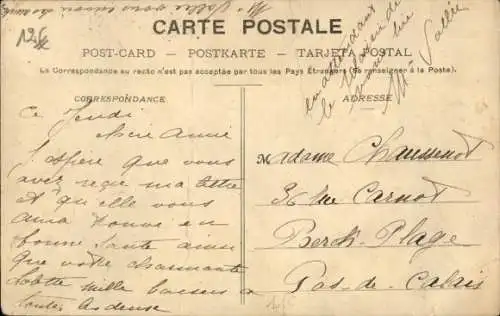 Mr Vallée vous
CARTE POSTALE
POST-CARD — POSTKARTE — TARJETA POSTAL
La Correspondance au recto n'est pas acceptée par tous les Pays Étrangers (Se renseigner à la Poste).
en attendant
le plaisir de
vous lire
Mme Vallée
CORRESPONDANCE
ADRESSE
Ce Jeudi
Chère Amie
J'espère que vous
avez reçue ma lettre
et qu'elle vous
aura trouvé en
bonne santé ainsi
que votre charmante
mille baisers a
toutes
Madame Chaussenot
36 rue Carnot
Berck-Plage
Pas-de-Calais